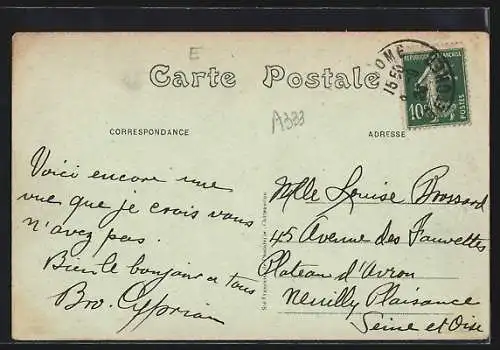 E
Carte Postale
A333
CORRESPONDANCE
ADRESSE
REPUBLIQUE FRANÇAISE
10c
POSTES
15 50
Voici encore une
vue que je crois vous
n'avez pas.
Bien le bonjour a tous
Bro. Cyprian
Mlle Louise Brossard
45 Avenue des Fauvettes
Plateau d'Avron
Neuilly Plaisance
Seine et Oise